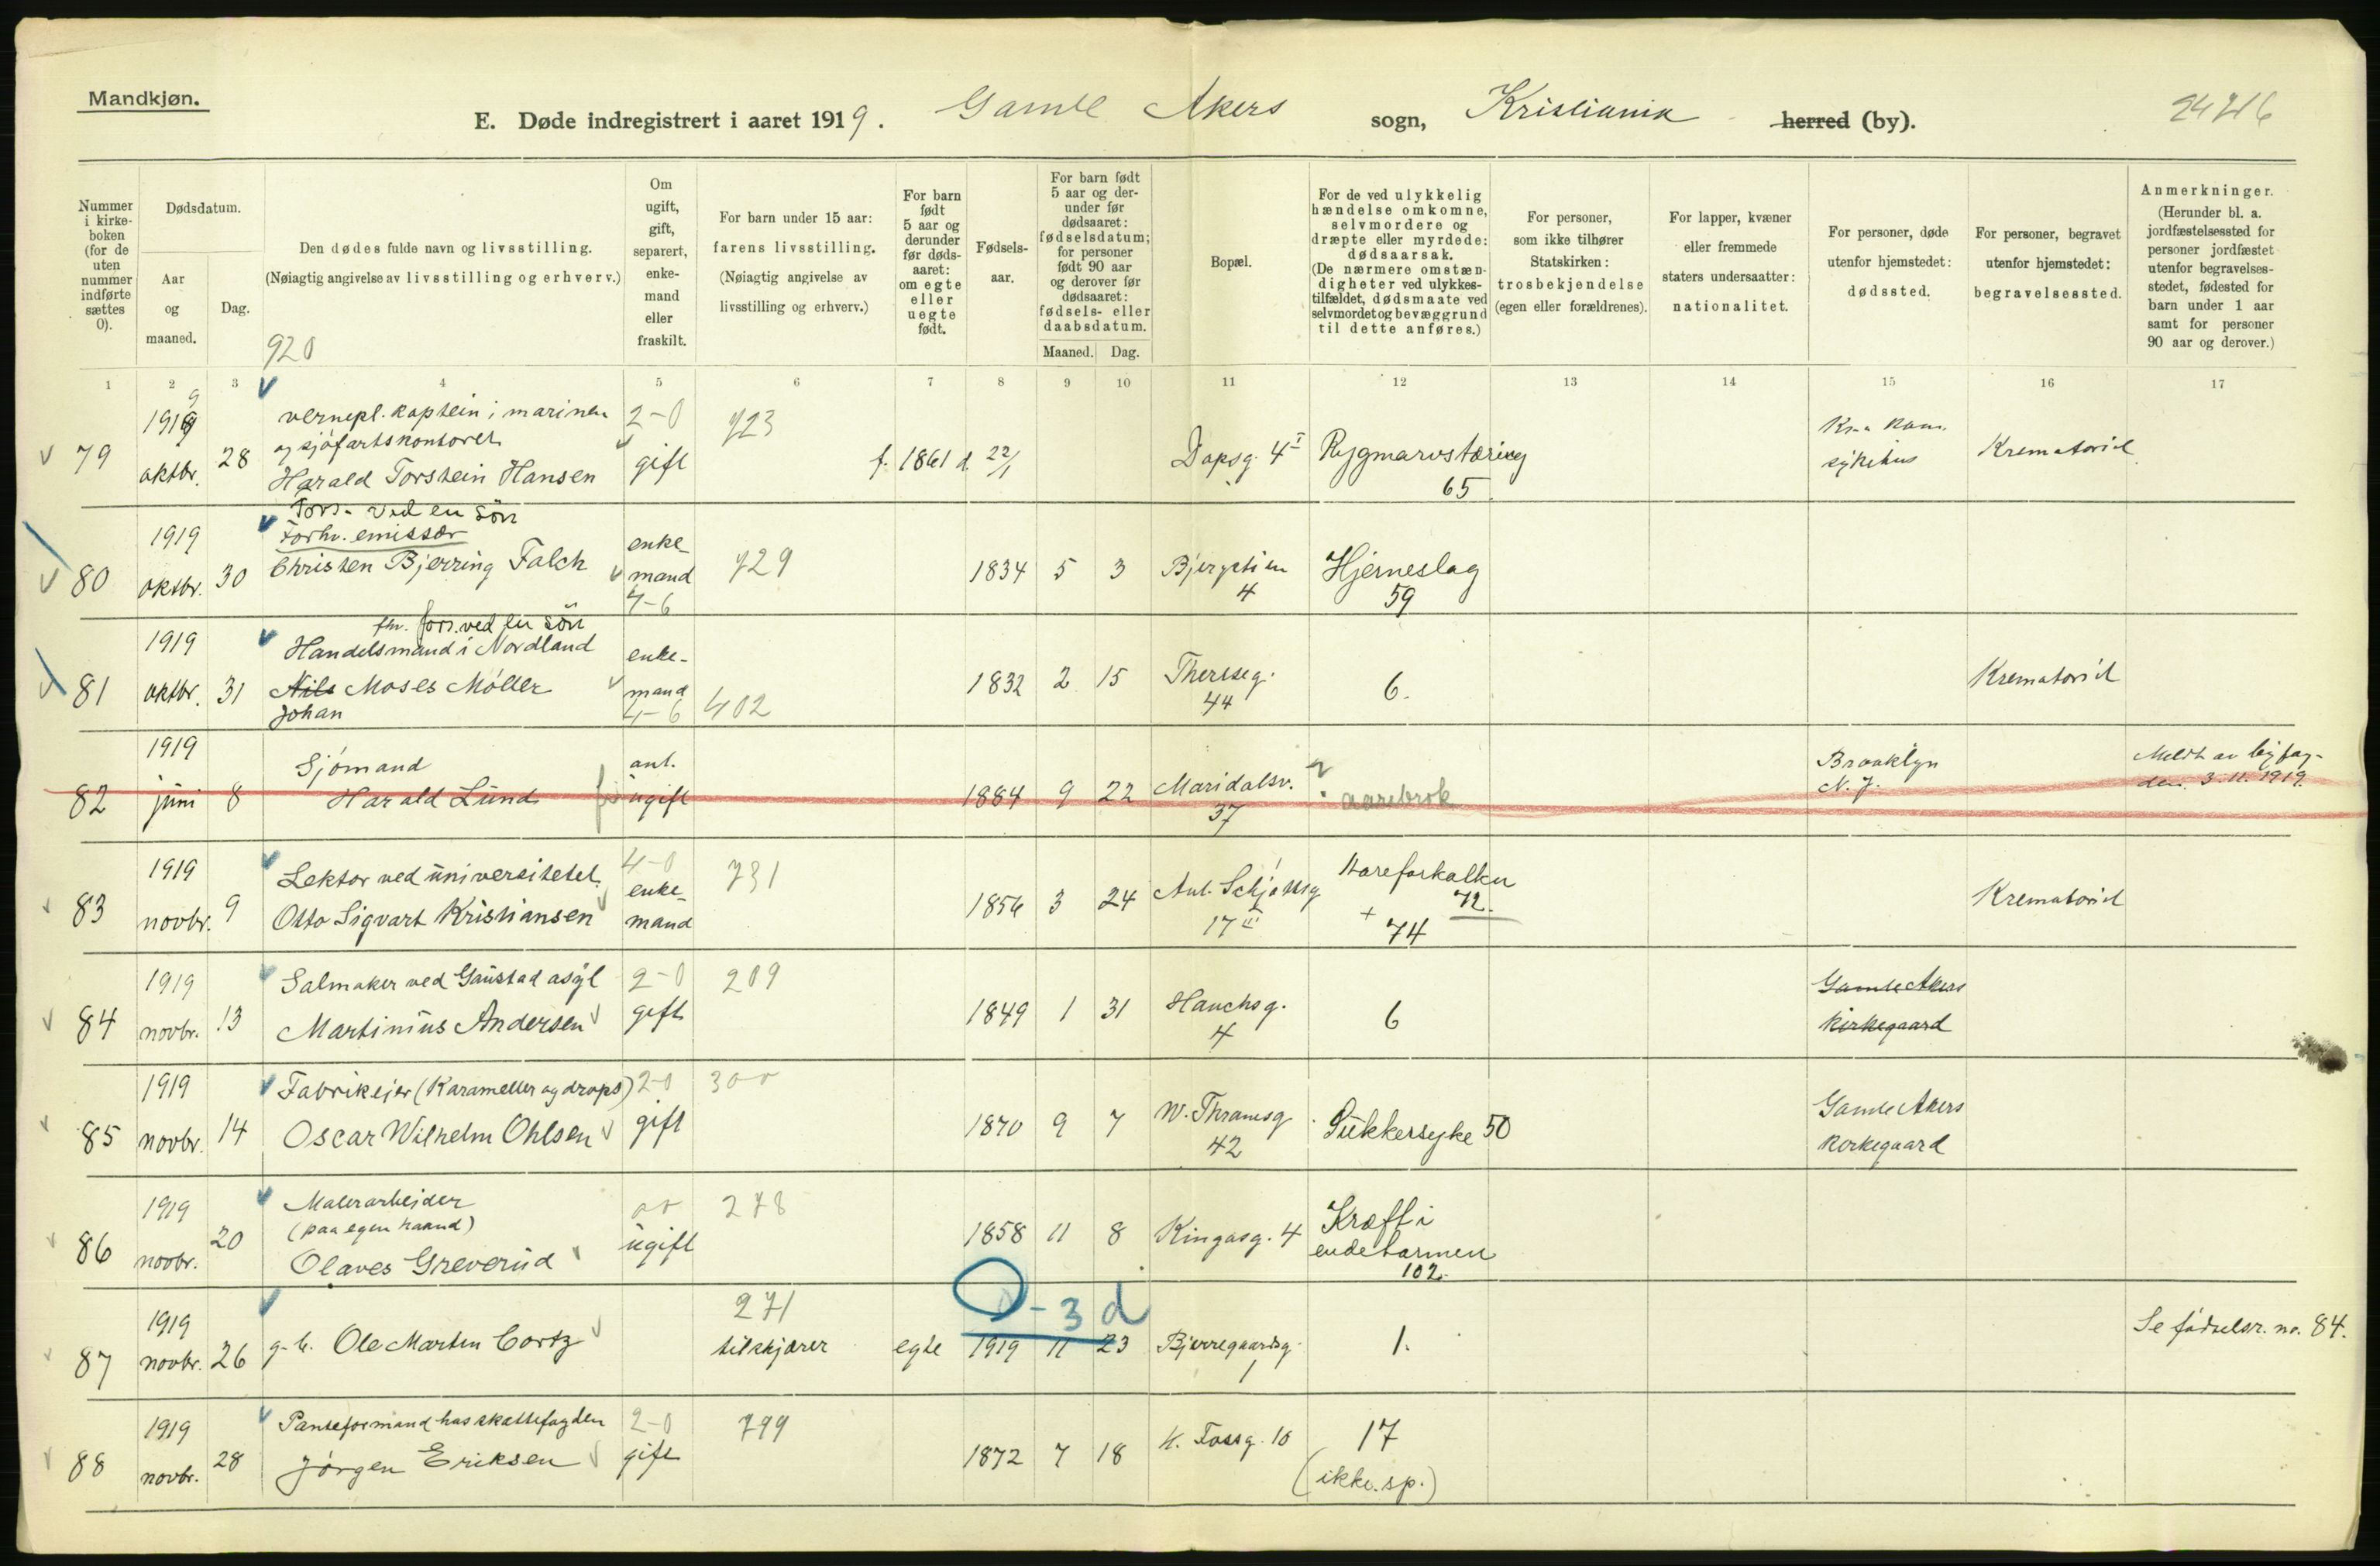 Mandkjøn.
E. Døde indregistrert i aaret 1919. Gamle Akers sogn, Kristiania herred (by).
Nummer i kirke-boken (for de uten nummer indførte sættes 0).
Dødsdatum.
Aar og maaned.
Dag.
Den dødes fulde navn og livsstilling.
(Nøiagtig angivelse av livsstilling og erhverv.)
920
Om ugift, gift, separert, enke-mand eller fraskilt.
For barn under 15 aar: farens livsstilling. (Nøiagtig angivelse av livsstilling og erhverv.)
For barn født 5 aar og derunder før døds-aaret: om egte eller uegte født.
Fødsels-aar.
For barn født 5 aar og der-under før dødsaaret: fødselsdatum; for personer født 90 aar og derover før dødsaaret: fødsels- eller daabsdatum.
Maaned. Dag.
Bopæl.
For de ved ulykkelig hændelse omkomne, selvmordere og dræpte eller myrdede: dødsaarsak. (De nærmere omstæn-digheter ved ulykkes-tilfældet, dødsmaate ved selvmordet og bevæggrund til dette anføres.)
For personer, som ikke tilhører Statskirken: trosbekjendelse (egen eller forældrenes).
For lapper, kvæner eller fremmede staters undersaatter: nationalitet.
For personer, døde utenfor hjemstedet: dødssted.
For personer, begravet utenfor hjemstedet: begravelsessted.
Anmerkninger. (Herunder bl. a. jordfæstelsessted for personer jordfæstet utenfor begravelses-stedet, fødested for barn under 1 aar samt for personer 90 aar og derover.)
1 2 3 4 5 6 7 8 9 10 11 12 13 14 15 16 17
79 1919 oktbr. 28 vernepl. kaptein i marinen og sjøfartskontoret Harald Torstein Hansen 2-0 gift 723 f. 1861 d. 22/1 Dopsg. 4 I Rygmarvstæring 65 Kr.a kom. sykehus Krematoriet
80 1919 oktbr. 30 Fors. ved en sön Forhv. emissær Christen Bjerring Falch enke mand 4-6 729 1834 5 3 Bjergstien 4 Hjerneslag 59
81 1919 oktbr. 31 fhv. fors. ved en sön Handelsmand i Nordland Nils Moses Möller Johan enke-mand 4-6 402 1832 2 15 Thereseg. 44 6. Krematoriet
82 1919 juni 8 Sjömand Harald Lund ant. ugift 1884 9 22 Maridalsv. 37 ? aarebrok Brooklyn N. J. Meldt av byfog-den 3.11.1919.
83 1919 novbr. 9 Lektor ved universitetet. Otto Sigvart Kristiansen 4-0 enke-mand 731 1856 3 24 Ant. Schjøttsg 17 III Aareforkalkn 72. + 74 Krematoriet
84 1919 novbr. 13 Salmaker ved Gaustad asyl Martinius Andersen 2-0 gift 209 1849 1 31 Hauchsg. 4 6 Gamle Akers kirkegaard
85 1919 novbr. 14 Fabrikeier (Karameller og drops) Oscar Wilhelm Ohlsen 2-0 gift 300 1870 9 7 W. Thranesg 42 Sukkersyke 50 Gamle Akers kirkegaard
86 1919 novbr. 20 Malerarbeider (paa egen haand) Olaves Greverud ugift 278 1858 11 8 Kingosg. 4 Kræft i endetarmen 102.
0-3 d
87 1919 novbr. 26 g. b. Ole Martin Cortz 271 tilskjærer egte 1919 11 23 Bjerregaardsg. 1 1. Se fødselsr. no. 84.
88 1919 novbr. 28 Panteformand hos skattefogden Jörgen Eriksen 2-0 gift 799 1872 7 18 N. Fossg. 10 17 (ikke. sp.)